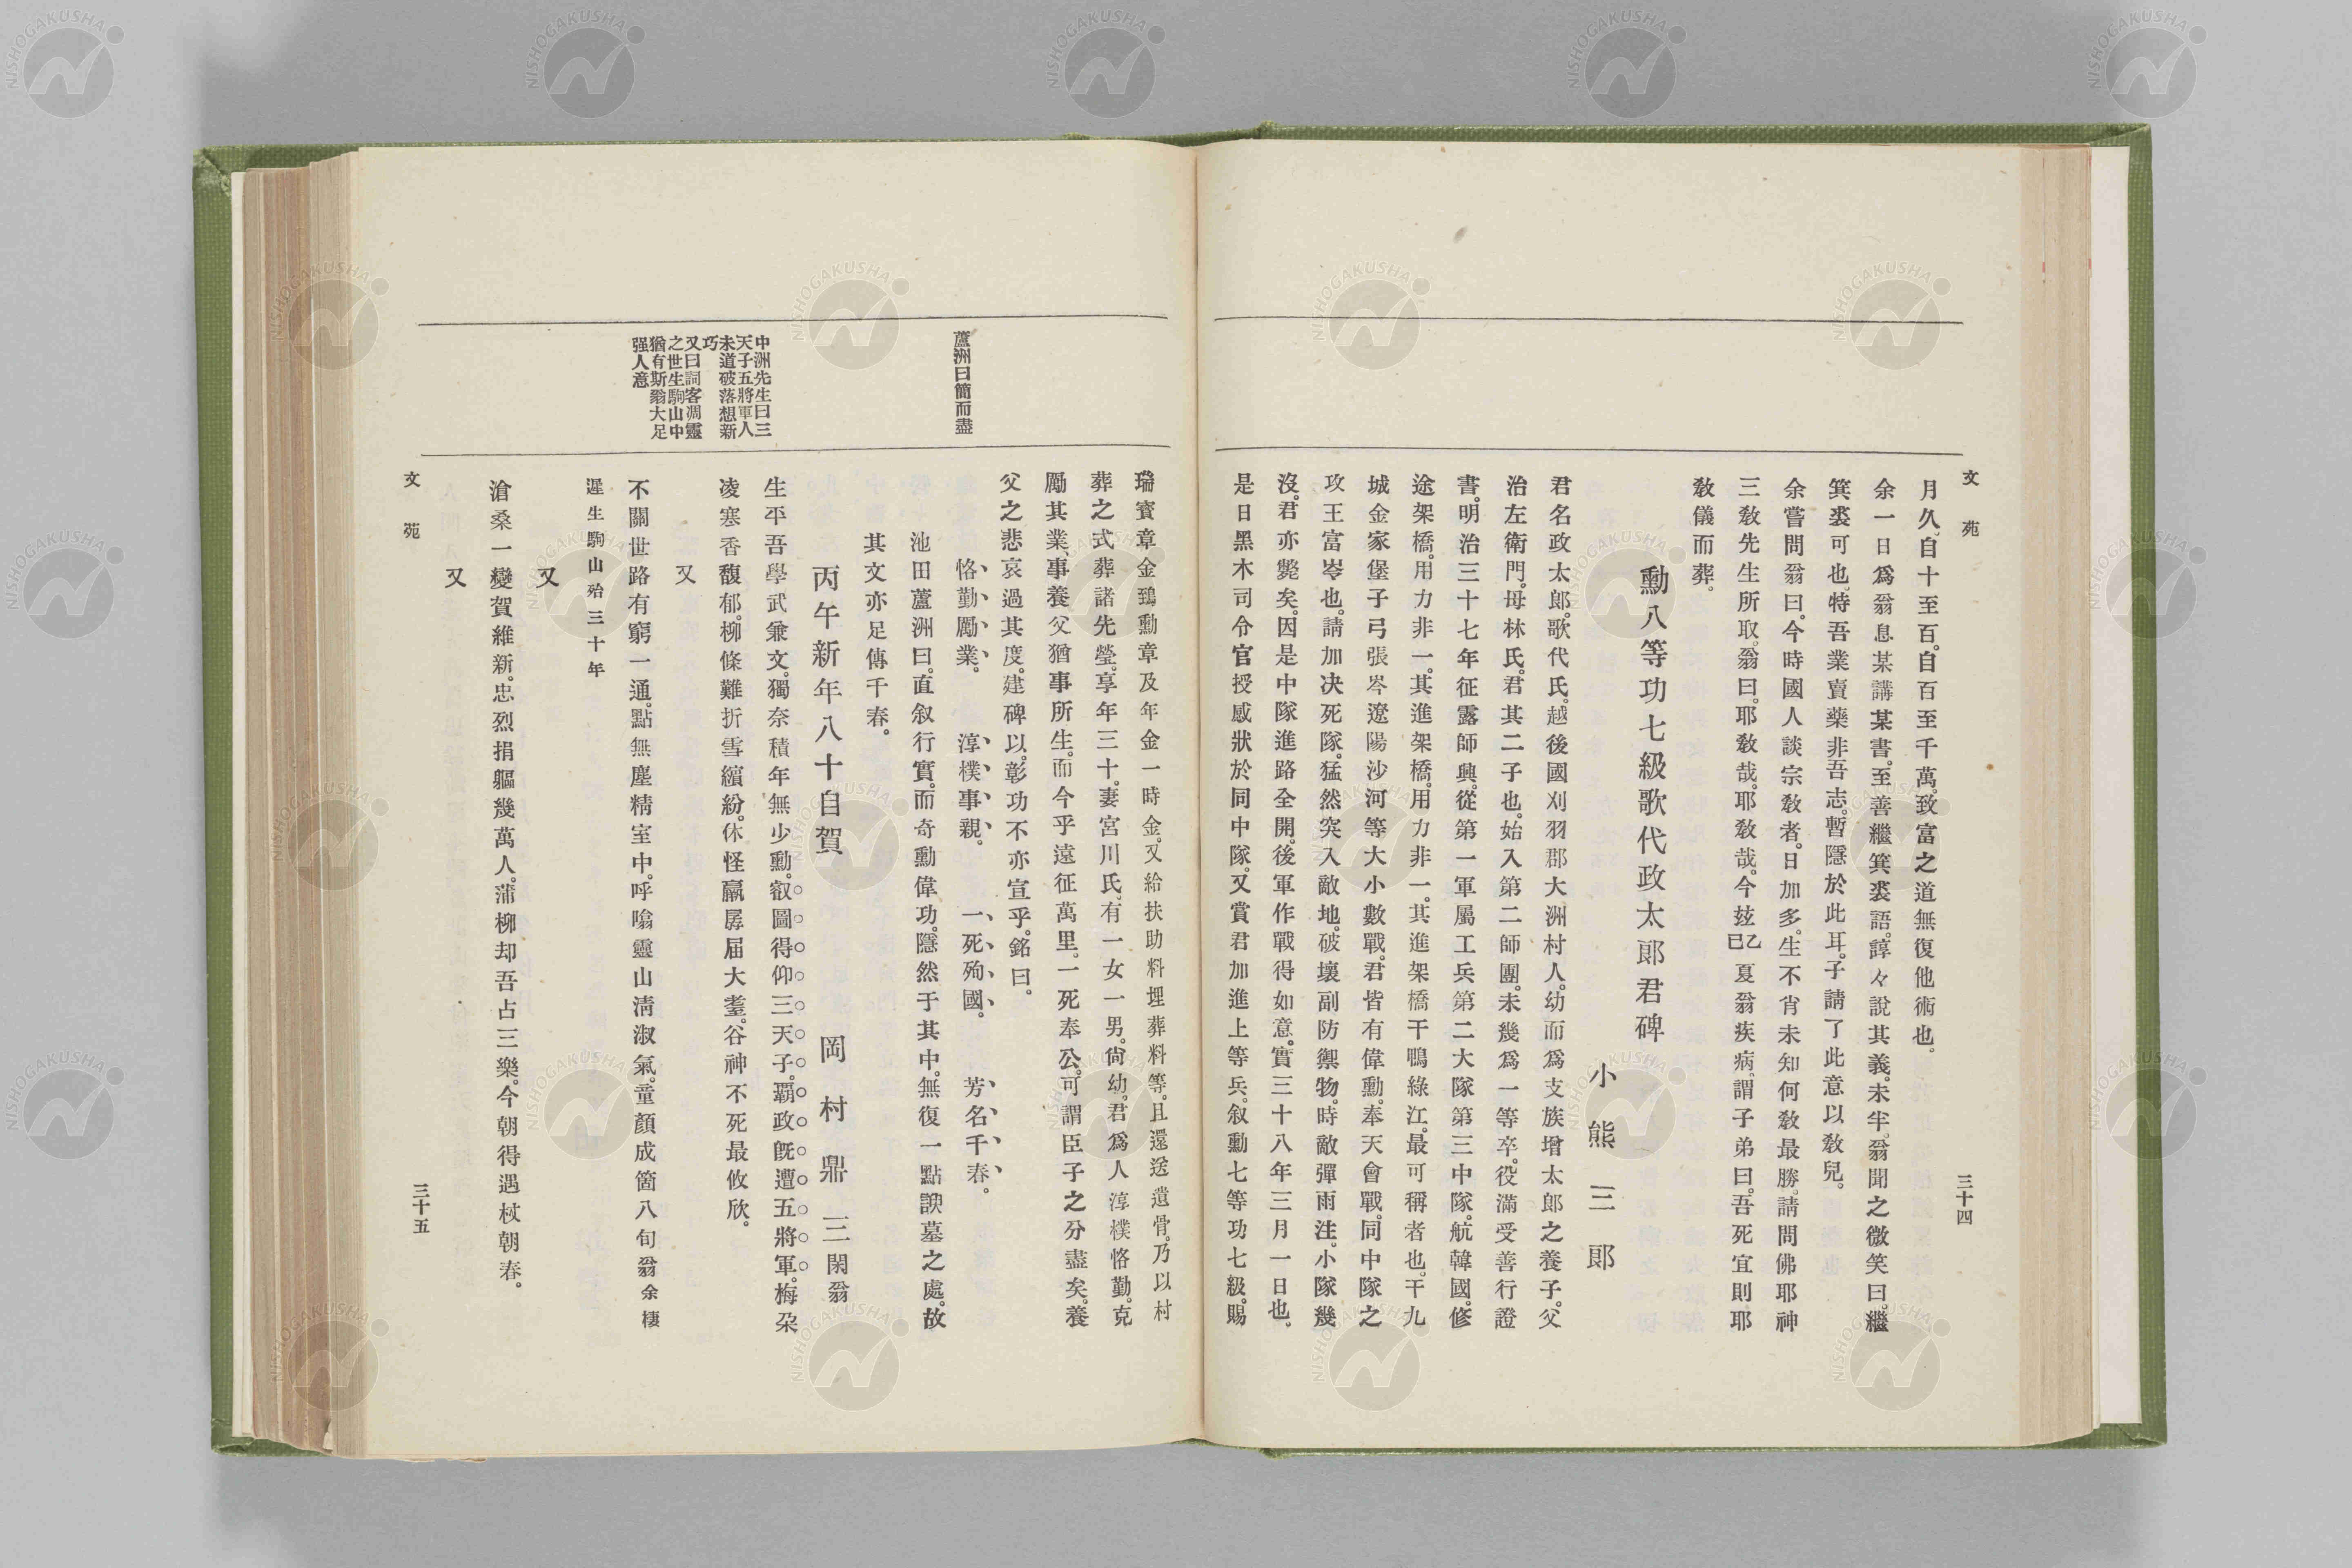 文苑
三十四
月久。自十至百。自百至千萬。致富之道無復他術也。
余一日爲翁息某講某書。至善繼箕裘語。諄々說其義。未半。翁聞之微笑曰。繼
箕裘可也。特吾業賣藥非吾志。暫隱於此耳。子請了此意以敎兒。
余嘗問翁曰。今時國人談宗敎者。日加多。生不肖未知何敎最勝。請問佛耶神
三敎先生所取。翁曰。耶敎哉。耶敎哉。今玆乙巳夏翁疾病。謂子弟曰。吾死宜則耶
敎儀而葬。
勳八等功七級歌代政太郞君碑
小熊三郞
君名政太郞。歌代氏。越後國刈羽郡大洲村人。幼而爲支族增太郞之養子。父
治左衛門。母林氏。君其二子也。始入第二師團。未幾爲一等卒。役滿受善行證
書。明治三十七年征露師興。從第一軍屬工兵第二大隊第三中隊。航韓國。修
途架橋。用力非一。其進架橋。用力非一。其進架橋干鴨綠江。最可稱者也。干九
城金家堡子弓張岑遼陽沙河等大小數戰。君皆有偉勳。奉天會戰。同中隊之
攻王富岺也。請加決死隊。猛然突入敵地。破壞副防禦物。時敵彈雨注。小隊幾
沒。君亦斃矣。因是中隊進路全開。後軍作戰得如意。實三十八年三月一日也。
是日黑木司令官授感狀於同中隊。又賞君加進上等兵。叙勳七等功七級。賜
瑞寶章金鵄勳章及年金一時金。又給扶助料埋葬料等。且還送遺骨。乃以村
葬之式葬諸先塋。享年三十。妻宮川氏。有一女一男。尙幼。君爲人淳樸恪勤。克
勵其業、事養父猶事所生。而今乎遠征萬里。一死奉公。可謂臣子之分盡矣。養
父之悲哀過其度。建碑以彰功不亦宣乎。銘曰。
恪勤勵業。　淳樸事親。　一死殉國。　芳名千春。
蘆洲曰簡而盡
池田蘆洲曰。直叙行實。而奇勳偉功。隱然于其中。無復一點諛墓之處。故
其文亦足傳千春。
丙午新年八十自賀　岡村鼎三閑翁
生平吾學武兼文。獨奈積年無少勳。叡圖得仰三天子。覇政旣遭五將軍。梅朶
凌寒香馥郁。柳條難折雪繽紛。休怪羸孱届大耋。谷神不死最攸欣。
中洲先生曰三
天子五將軍人
未道破落想新
巧
又曰詞客凋靈
之世生駒山中
猶有斯翁大足
强人意
又
不關世路有窮一通。點無塵精室中。呼噏靈山淸淑氣。童顏成箇八旬翁 余棲
遲生駒山殆三十年
又
滄桑一變賀維新。忠烈捐軀幾萬人。蒲柳却吾占三樂。今朝得遇杖朝春。
又
文苑
三十五